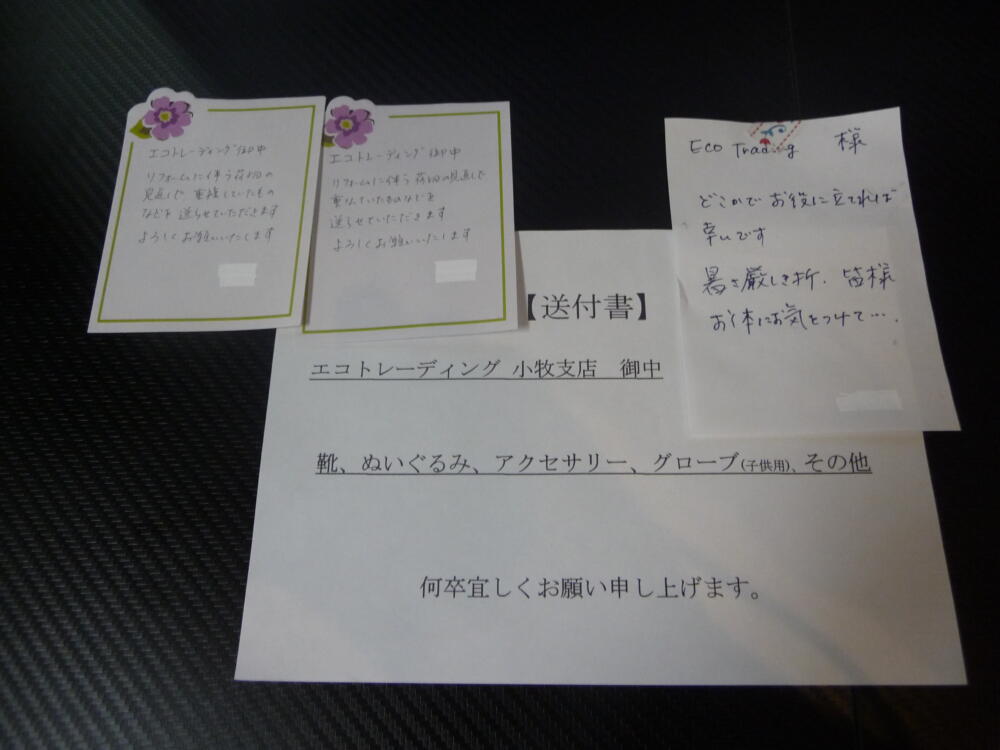 エコトレーディング御中
リフォームに伴う荷物の
見直しで、重複していたもの
などを送らせていただきます
よろしくお願いいたします
エコトレーディング御中
リフォームに伴う荷物の見直しで
していたものなどを
送らせていただきます
よろしくお願いいたします
Eco Trading 様
どこかでお役に立てれば
幸いです
暑さ厳しき折、皆様
お体にお気をつけて…．
【送付書】
エコトレーディング 小牧支店 御中
靴、ぬいぐるみ、アクセサリー、グローブ(子供用)、その他
何卒宜しくお願い申し上げます。